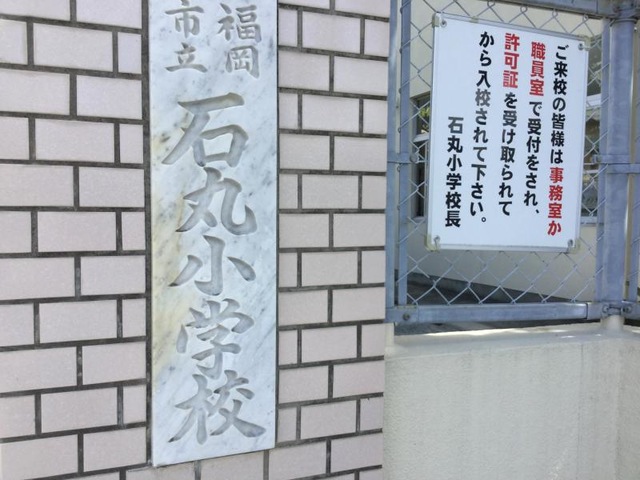 福岡
市立
石丸小学校
ご来校の皆様は事務室か
職員室で受付をされ、
許可証を受け取られて
から入校されて下さい。
石丸小学校長